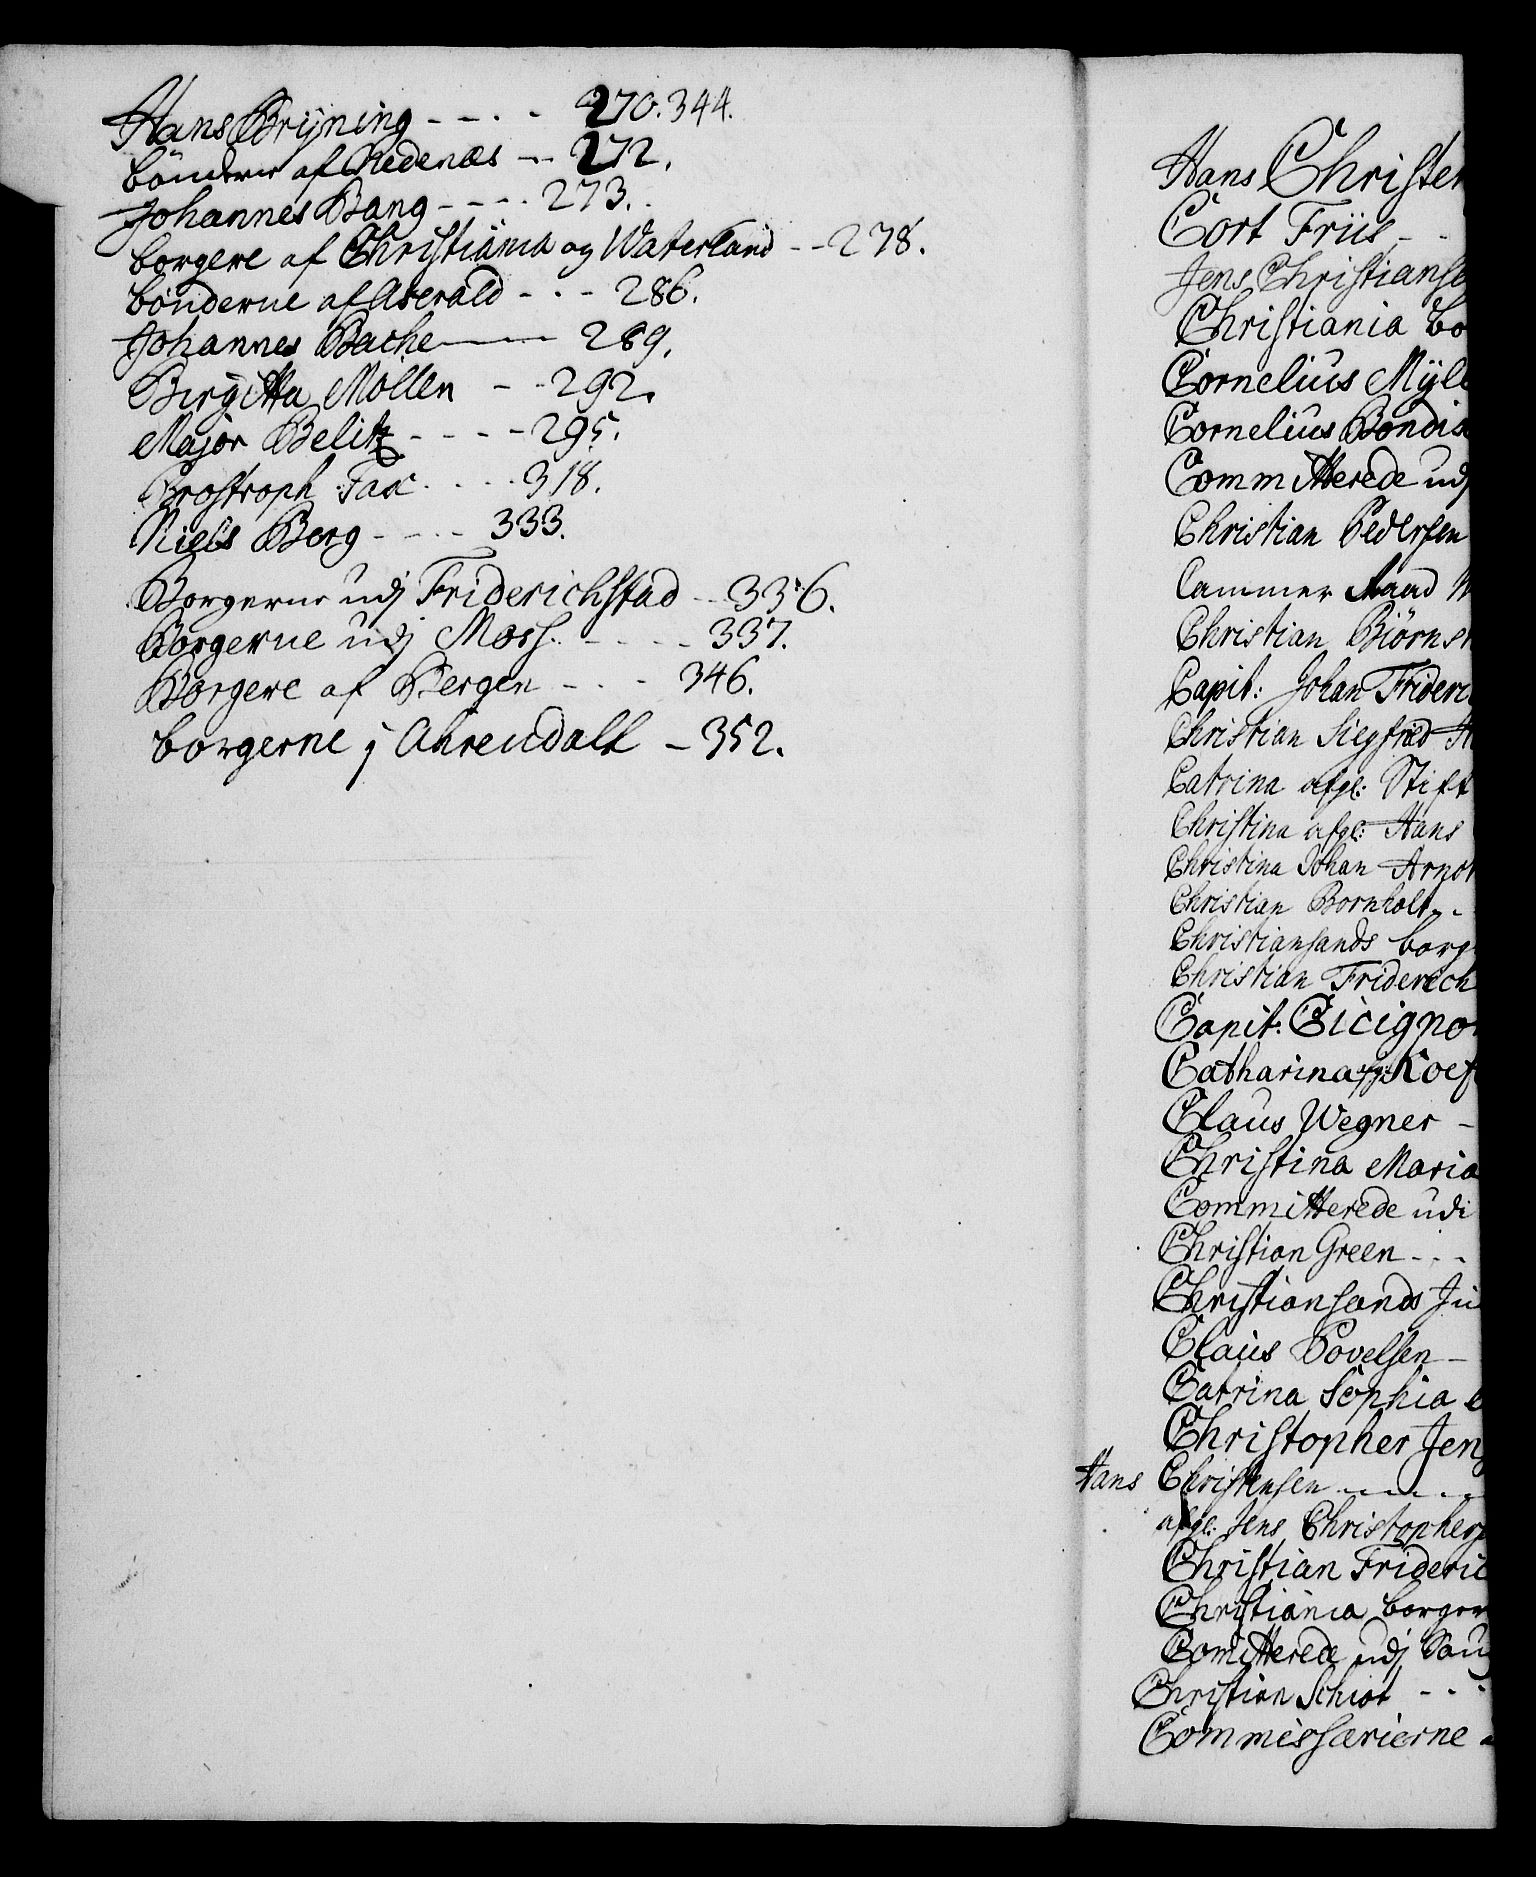 Hans Brÿning - - - - 270. 344.
bönderne af Nedenæs -- 272.
Johannes Bang - - - - 273.
borgere af Christiania og Waterland - - 278.
bønderne af Aserald - - - 286.
Johannes Bache 289.
Birgitta Möllen - - 292.
Major Belitz - - - - 295.
Fax - - - - 318.
Niels Berg - - - - 333.
Borgerne udj Friderichstad - - 336.
Borgerne udj Moss - - - - 337.
Borgere af Bergen - - - 346.
borgerne j Ahrendall - 352.
Hans Christen
Cort Friis - -
Jens Christianse
Christiania bo
Cornelius Mÿll
Cornelius Bondis
Committerede udj
Christian Pedersen
Cammer Raad
Christian Biörns
Capit: Johan Frideric
Christian Siegfried
Catrina afgl: Stift
Christina afgl: Hans
Christina Johan Arnol
Christian Bornholt - -
Christiansands borg
Christian Friderich
Capit: Cicigno
Catharina afgl: Koef
Claus Wegner -
Christina Maria
Committerede udi
Christian Green - - -
Christiansands
Claus Povelsen -
Catrina Sophia
Christopher Jens
Hans Christensen - - - -
afgl: Jens Christophers
Christian Frideric
Christiania borger
Comitterede udj Sau
Christian Schiøt - - -
Commissarierne